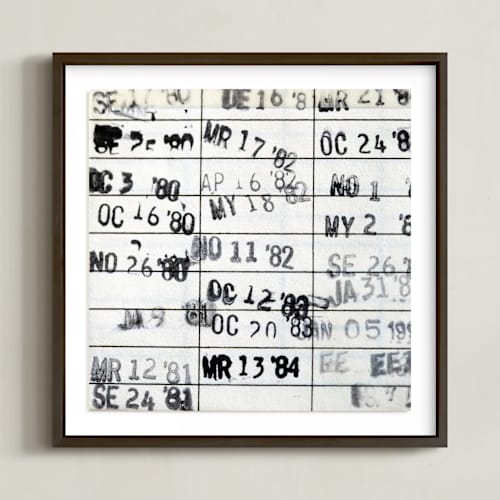 SE '80
SE 25 '80
OC 3 '80
OC 16 '80
NO 26 '80
JA 9
MR 12 '81
SE 24 '81
DE 16 '8
MR 17 '82
AP 16 '82
MY 18 '82
NO 11 '82
OC 12 '83
OC 20 '83
MR 13 '84
MR 21 '8
OC 24 '8
NO 1 '
MY 2 '8
SE 26
JA 31 '8
AN 05 199